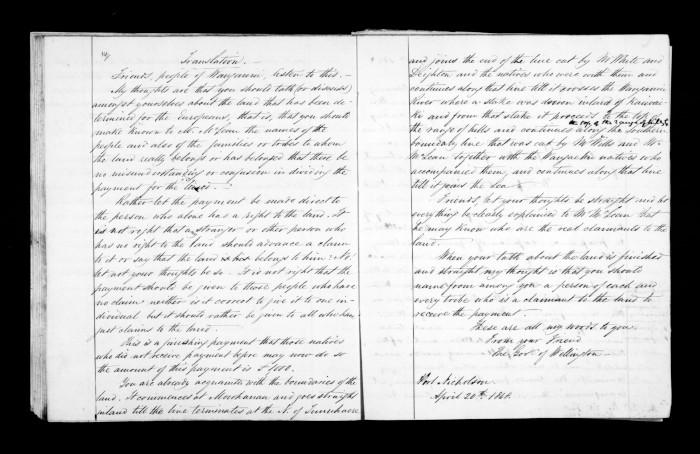 Translation. —
Friends, people of Wanganui, listen to this. —
My thoughts are that you should talk (or discuss)
amongst yourselves about the land that has been de-
termined for the Europeans, that is, that you should
make known to Mr. McLean the names of the
people and also of the families or tribes to whom
the land really belongs or has belonged that there be
no misunderstanding or confusion in dividing the
payment for the land. —
Rather let the payment be made direct to
the person who alone has a right to the land. It
is not right that a stranger or other person who
has no right to the land should advance a claim
to it or say that the land belongs to him. No!
let not your thoughts be so. It is not right that the
payment should be given to those people who have
no claim neither is it correct to give it to one in-
dividual but it should rather be given to all who have
just claims to the land.
This is a finishing payment that those natives
who did not receive payment before may now do so
the amount of this payment is £1000.
You are already acquainted with the boundaries of the
land. It commences at Mowhanau and goes straight
inland till the line terminates at the N. of
and joins the end of the line cut by Mr White and
Deighton and the natives who were with them and
continues along that line till it crosses the Wanganui
River where a stake was driven inland of
and from that stake it proceeds to the
the top of the range of hills
the range of hills and continues along the Southern
boundary line that was cut by Mr Wills and Mr
McLean together with the natives who
accompanied them, and continues along that line
till it joins the sea.
Friends, let your thoughts be straight and let
everything be clearly explained to Mr McLean that
he may know who are the real claimants to the
land.
When your talk about the land is finished
and straight my thought is that you should
name from among you a person of each and
every tribe who is a claimant to the land to
receive the payment.
These are all my words to you.
From your Friend
The Govr. of Wellington —
Port Nicholson
April 20th. 1848.